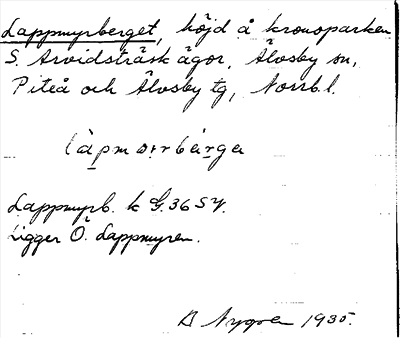 Lappmyrberget, höjd å kronoparken
S. Arvidsträsk ägor, Älvsby sn,
Piteå och Älvsby tg, Norrb.l.
Lappmyrb. k G. 36 SV.
Ligger Ö. Lappmyren.
B Nygren 1935.